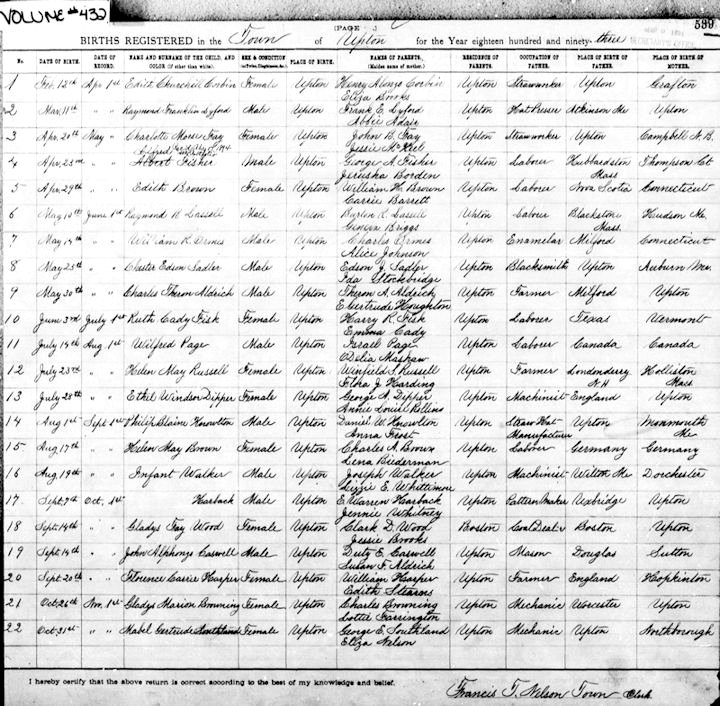 VOLUME #432
[PAGE .] 539
BIRTHS REGISTERED in the Town of Upton for the Year eighteen hundred and ninety-three
No. DATE OF BIRTH. DATE OF RECORD. NAME AND SURNAME OF THE CHILD, AND COLOR (If other than white). SEX & CONDITION PLACE OF BIRTH. NAMES OF PARENTS, (Maiden name of mother). RESIDENCE OF PARENTS. OCCUPATION OF FATHER. BIRTHPLACE OF FATHER. BIRTHPLACE OF MOTHER.
1 Feb. 12th Apr 1st Edith Churchill Corbin Female Upton Henry Alonzo Corbin Upton Strawworker Upton Grafton
Eliza Brooks
2 Mar. 11th " " Raymond Franklin Lyford Male Upton Frank E. Lyford Upton Hat Presser Atkinson Me Upton
Abbie Adair
3 Apr. 20th May " Charlotte Morse Fay Female Upton John B. Fay Upton Strawworker Upton Campbell N.B.
Jessie McKeel
4 Apr. 23rd " " Abbott Fisker Male Upton George A. Fisker Upton Laborer Hubbardston Thompson Ct
Jerusha Borden Mass
5 Apr. 29th " " Edith Brown Female Upton William H. Brown Upton Laborer Nova Scotia Connecticut
Carrie Barrett
6 May 10th June 1st Raymond B Lassell Male Upton Lassell Upton Laborer Blackstone Hudson Me.
Briggs Mass.
7 May 19th " " William R. Ormes Male Upton Charles Ormes Upton Enameler Milford Connecticut
Alice Johnson
8 May 25th " " Chester Edson Sadler Male Upton Edson J. Sadler Upton Blacksmith Upton Auburn Me.
Ida Stockbridge
9 May 30th " " Charles Theron Aldrich Male Upton Theron A. Aldrich Upton Farmer Milford Upton
E Gertrude Houghton
10 June 3rd July 1st Ruth Cady Fisk Female Upton Harry R. Fisk Upton Laborer Texas Vermont
Emma Cady
11 July 14th Aug. 1st Wilfred Page Male Upton Israel Page Upton Laborer Canada Canada
Delia
12 July 23rd " " Helen May Russell Female Upton Winfield S. Russell Upton Farmer Londonderry Holliston
Flora J. Harding N.H Mass
13 July 28th " " Ethel Windsor Dipper Female Upton George A. Dipper Upton Machinist England Upton
Annie Louise Rollins
14 Aug 1st Sept 1st Philip Blaine Knowlton Male Upton Daniel W. Knowlton Upton Straw Hat Upton Monmouth
Anna Frost Manufacturer Me
15 Aug 17th " " Helen May Brown Female Upton Charles A. Brown Upton Laborer Germany Germany
Lena Biederman
16 Aug 19th " " Infant Walker Male Upton Joseph Walker Upton Machinist Wilton Me Dorchester
Lizzie E. Whittimore
17 Sept. 7th Oct. 1st Harback Male Upton E Warren Harback Upton Pattern Maker Uxbridge Upton
Jennie Whitney
18 Sept. 14th " " Gladys Fay Wood Female Upton Clark D. Wood Boston Coal Dealer Boston Upton
Jessie Brooks
19 Sept. 14th " " John Alphonzo Caswell Male Upton Duty E. Caswell Upton Mason Douglas Sutton
Susan F. Aldrich
20 Sept. 20th " " Florence Carrie Harper Female Upton William Harper Upton Farmer England Hopkinton
Edith Stearns
21 Oct. 26th Nov. 1st Gladys Marion Browning Female Upton Charles Browning Upton Mechanic Worcester Upton
Lottie Farrington
22 Oct 31st " " Mabel Gertrude Southland Female Upton George E. Southland Upton Mechanic Upton Northborough
Eliza Nelson
I hereby certify that the above return is correct according to the best of my knowledge and belief.
Francis T. Nelson Town Clerk.